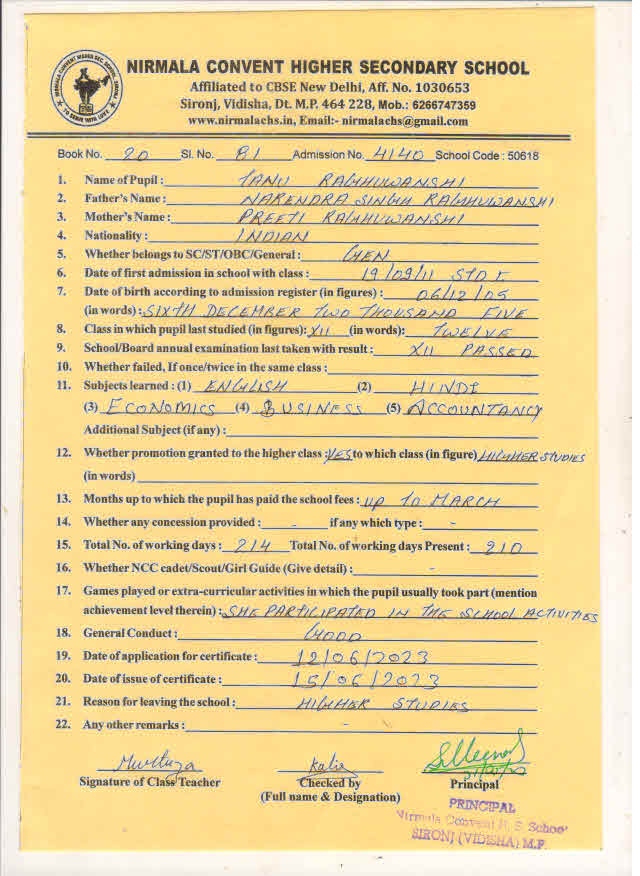 NIRMALA CONVENT HIGHER SECONDARY SCHOOL
Affiliated to CBSE New Delhi, Aff. No. 1030653
Sironj, Vidisha, Dt. M.P. 464 228, Mob.: 6266747359
www.nirmalachs.in, Email:- nirmalachs@gmail.com
Book No. 20 Sl. No. 81 Admission No. 4140 School Code : 50618
1. Name of Pupil : TANU RAGHUWANSHI
2. Father's Name : NARENDRA SINGH RAGHUWANSHI
3. Mother's Name : PREETI RAGHUWANSHI
4. Nationality : INDIAN
5. Whether belongs to SC/ST/OBC/General : GEN
6. Date of first admission in school with class : 19/09/11 STD I
7. Date of birth according to admission register (in figures) : 06/12/05
(in words) : SIXTH DECEMBER TWO THOUSAND FIVE
8. Class in which pupil last studied (in figures): XII (in words): TWELVE
9. School/Board annual examination last taken with result : XII PASSED
10. Whether failed, If once/twice in the same class :
11. Subjects learned : (1) ENGLISH (2) HINDI
(3) ECONOMICS (4) BUSINESS (5) ACCOUNTANCY
Additional Subject (if any) :
12. Whether promotion granted to the higher class : YES to which class (in figure) HIGHER STUDIES
(in words)
13. Months up to which the pupil has paid the school fees : UP TO MARCH
14. Whether any concession provided : - if any which type : -
15. Total No. of working days : 214 Total No. of working days Present : 210
16. Whether NCC cadet/Scout/Girl Guide (Give detail) : -
17. Games played or extra-curricular activities in which the pupil usually took part (mention
achievement level therein) : SHE PARTICIPATED IN THE SCHOOL ACTIVITIES
18. General Conduct : GOOD
19. Date of application for certificate : 12/06/2023
20. Date of issue of certificate : 15/06/2023
21. Reason for leaving the school : HIGHER STUDIES
22. Any other remarks : -
Signature of Class Teacher Checked by Principal
(Full name & Designation)
PRINCIPAL
Nirmala Convent H. S. School
SIRONJ (VIDISHA) M.P.